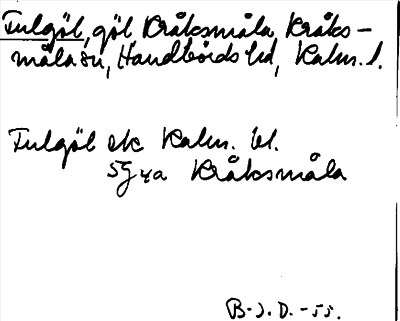 Fulgöl, göl Kråksmåla, Kråks-
måla sn, Handbörds hd, Kalm. l.
Fulgöl ek Kalm. bl.
5G4a Kråksmåla
B.J.D. -55.